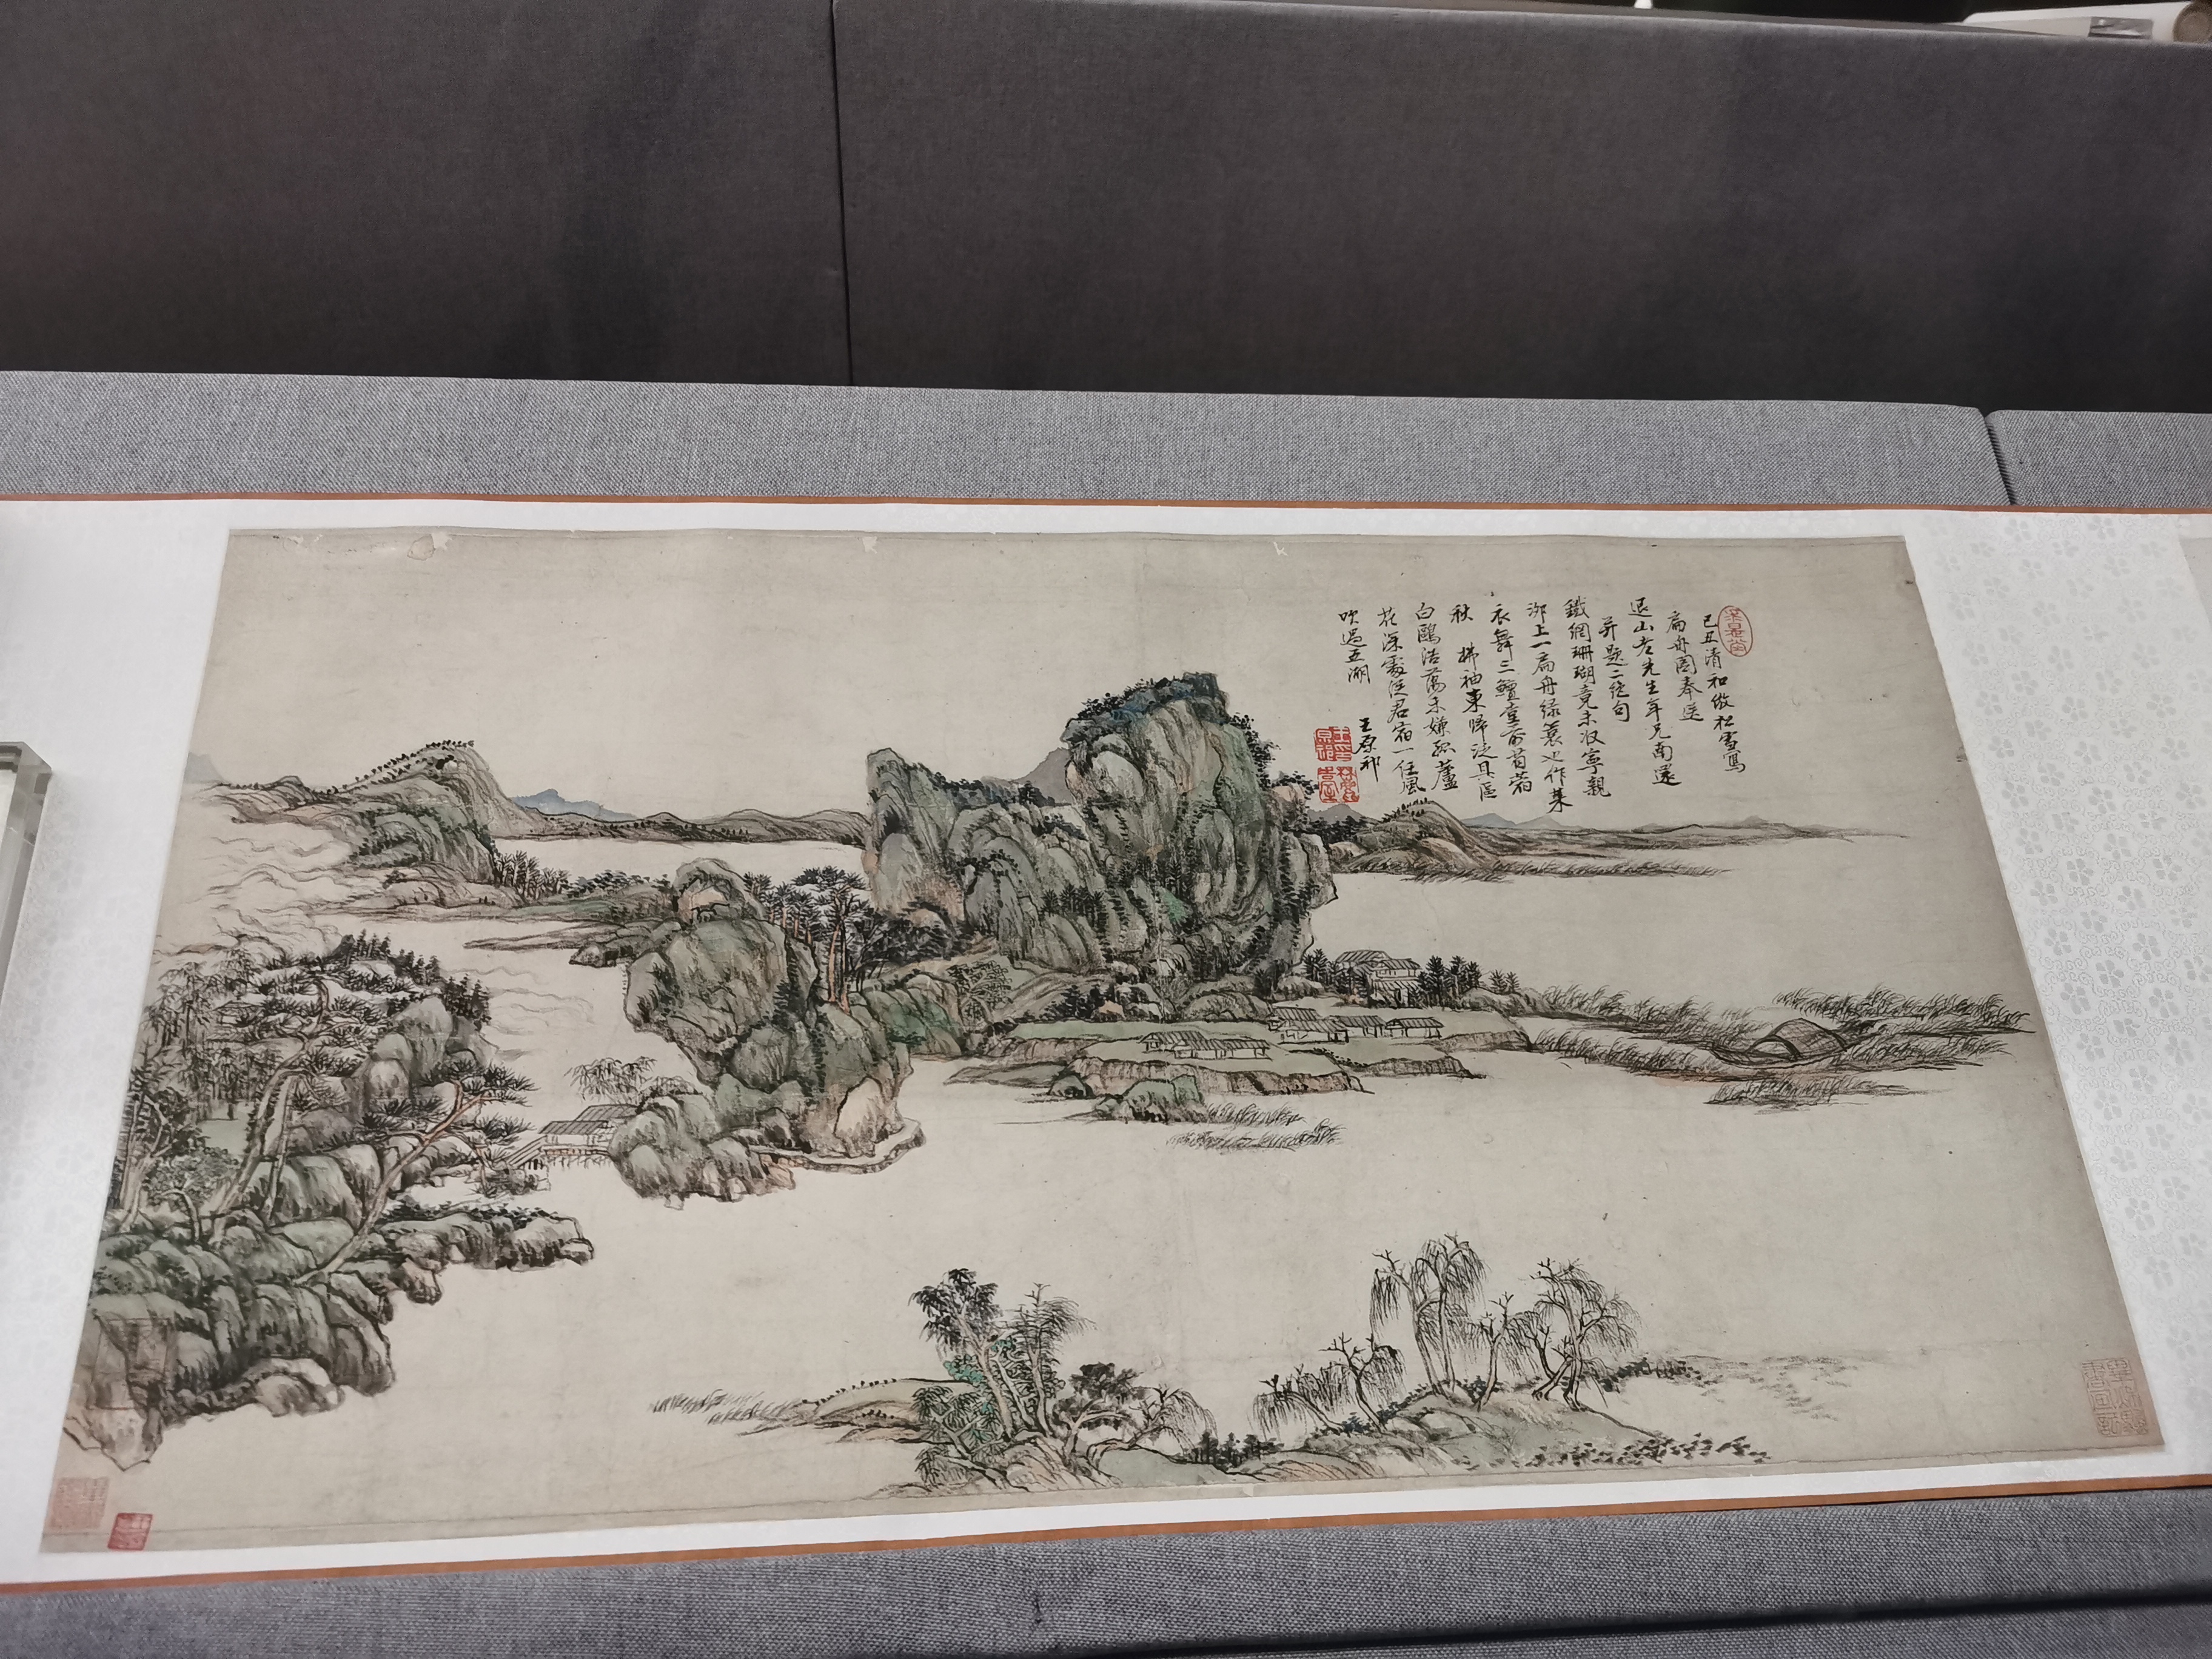 己丑清和倣松雪寫
扁舟圖奉送
退山老先生年兄南還
并題二絕句
鐵網珊瑚竟未收寧親
湖上一扁舟綠蓑也作萊
衣舞三鱣堂前苜蓿
秋 拂袖東歸泛具區
白鷗浩蕩未嫌孤蘆
花深處從君宿一任風
吹過五湖
王原祁